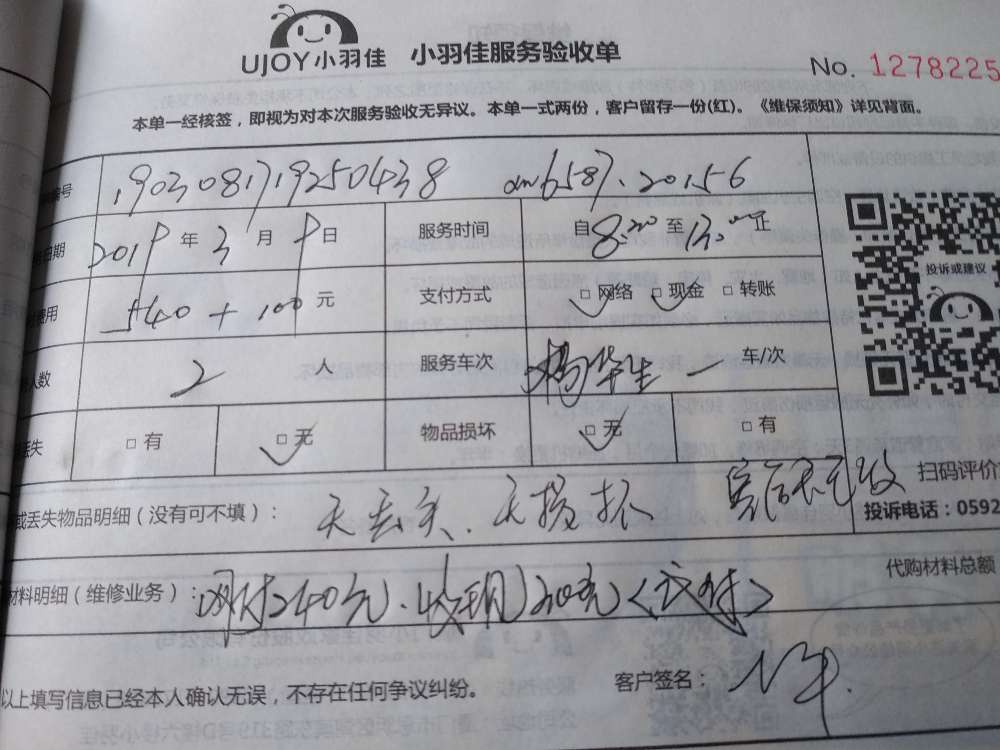 UJOY小羽佳 小羽佳服务验收单
No. 1278225
本单一经核签，即视为对本次服务验收无异议。本单一式两份，客户留存一份(红)。《维保须知》详见背面。
编号 1903081719250438
日期 2019年3月9日 服务时间 自8:00至13:00止
费用 540+100元 支付方式 □网络 □现金 □转账
人数 2人 服务车次 车/次
丢失 □有 □无 物品损坏 □无 □有
投诉或建议
扫码评价
或丢失物品明细（没有可不填）： 无丢失.无损坏
投诉电话：0592
材料明细（维修业务）： 网付240元.收现
代购材料总额
以上填写信息已经本人确认无误，不存在任何争议纠纷。 客户签名：